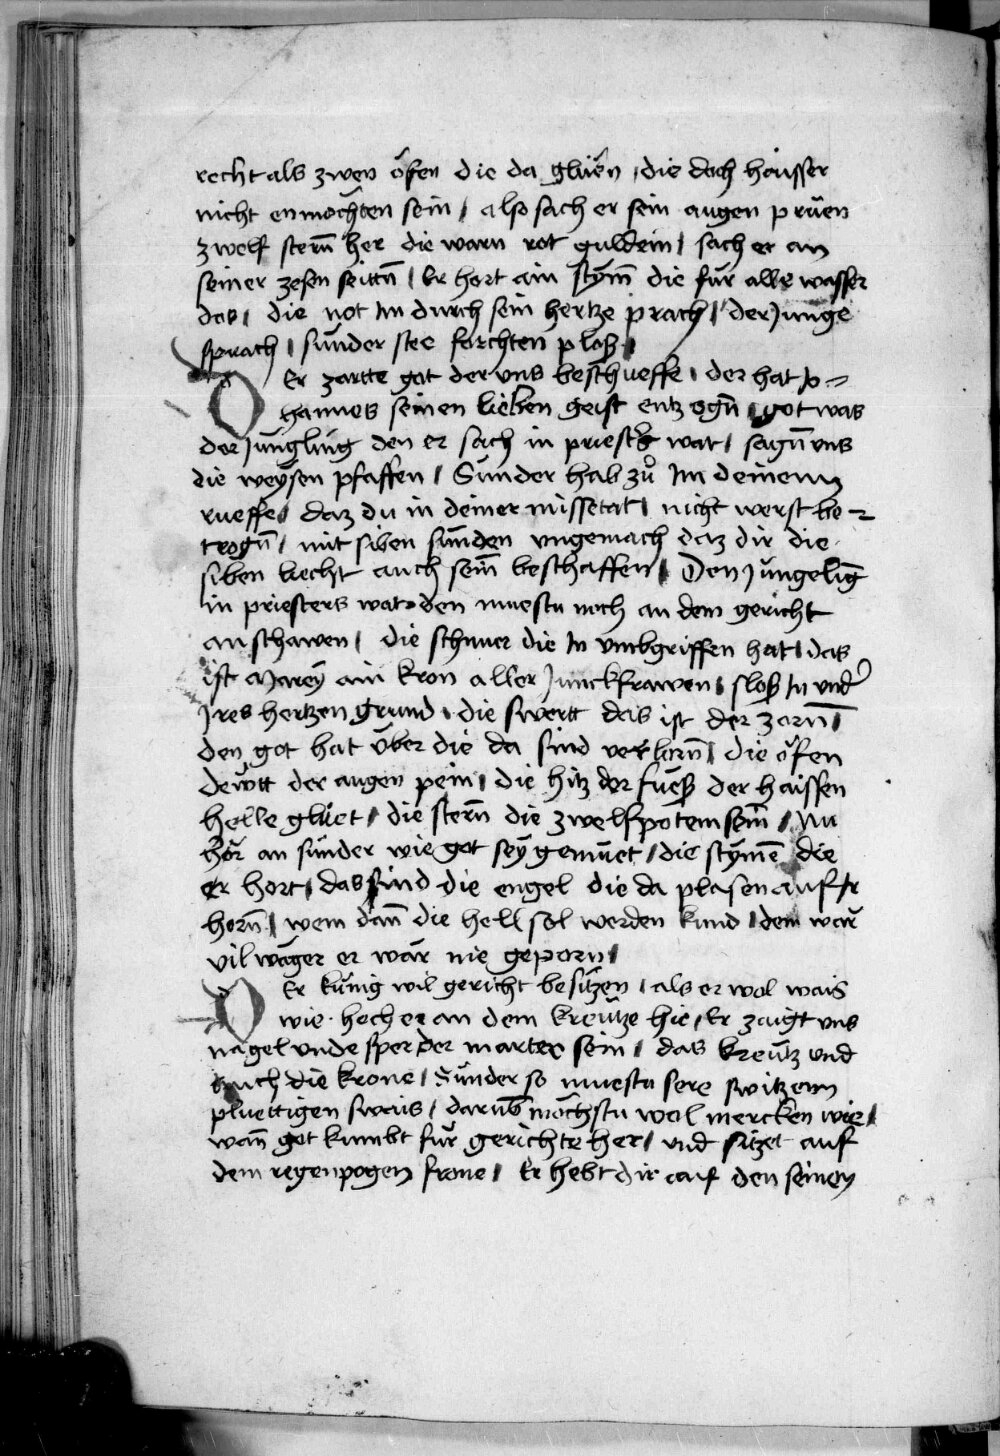 recht als zwen öfen die da glüen / die doch haisser
nicht enmöchten sein / also sach er sein augen prüen
zwelf stern̄ her die warn rot guldein / sach er an
seiner zesen seittn̄ / Er hort ain stym̄ die für alle wasser
das / die not Im durch sein hertze prach / der Junge
sprach / sünder stee forchten ploß /
Er zartte got der vns beschueffe / der hat Jo=
hannes seinen lieben geist entzogn̄ / got was
der Jüngling den er sach in priesters wat / sagn̄ vns
die weysen pfaffen / Sünder hab zů Im deinenn
rueffe / daz du in deiner missetat / nicht werst be=
trogn̄ / mit siben sünden vngemach daz dir die
siben liecht auch sein̄ beschaffen / Den Jüngelīg
in priesters wat den muestu noch an dem gericht
anschawen / die schnuer die In vmbgriffen hat / das
ist Marey ain kron aller Junckfrawen / sloß In vnder
Jres hertzen grund / die swert das ist der zorn̄ /
den got hat über die da sind verlorn̄ / die öfen
dewtt der augen pein / die hitz der fueß der haissen
helle glüet / die stern̄ die zwelfpoten sein̄ / Nu
hör an sünder wie got sey gemuet / die stymē die
er hort / das sind die engel die da plasen auf Ir
horn̄ / wem dan̄ die hell sol werden kund / dem wär
vil wäger er wär nie geporn /
Er künig wil gericht besitzen / als er wol wais
wie hoch er an dem kreütze hie / Er zaigt vns
nagel vnde sper der marter sein / das kreütz vnd
auch die krone / Sünder so muestu sere switzenn
pluettigen swais / darūb möchstu wol mercken wie /
wan̄ got kumbt für gerichte her / vnd sitzet auf
dem regenpogen frone / Er hebt dir auf den seinen